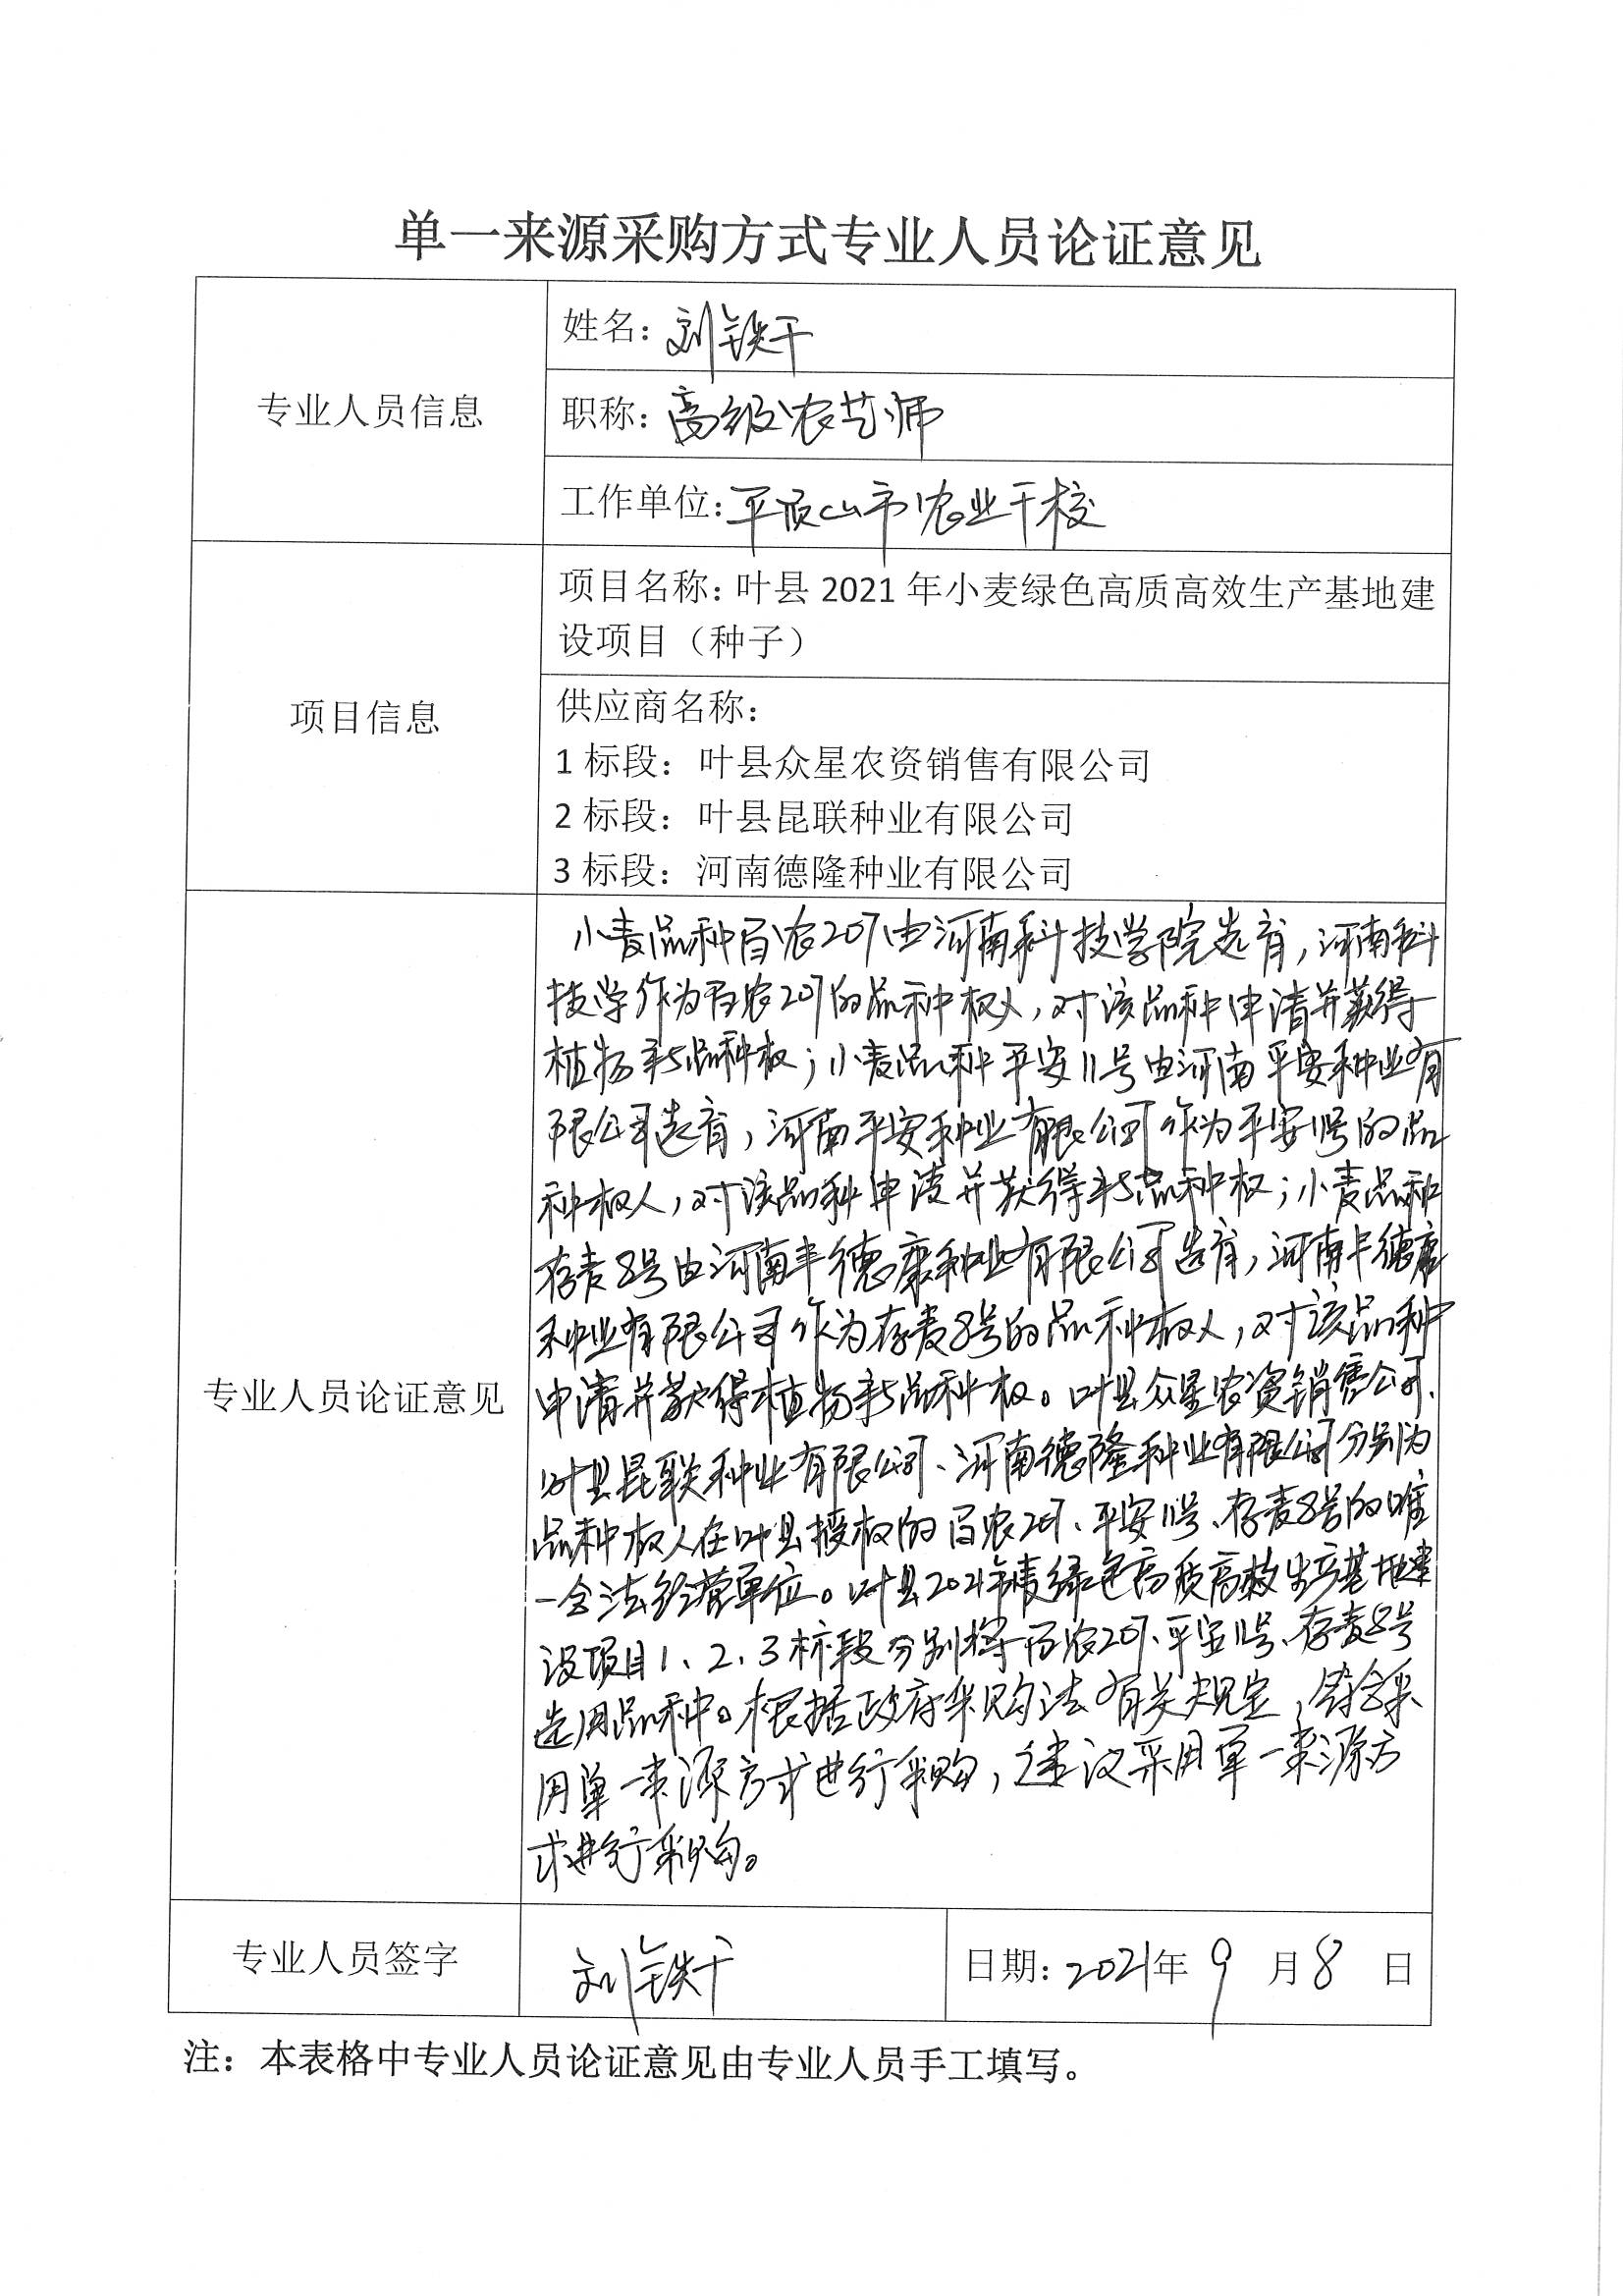 单一来源采购方式专业人员论证意见
专业人员信息
姓名：刘铁干
职称：高级农艺师
工作单位：平顶山市农业干校
项目信息
项目名称：叶县 2021 年小麦绿色高质高效生产基地建
设项目（种子）
供应商名称：
1 标段：叶县众星农资销售有限公司
2 标段：叶县昆联种业有限公司
3 标段：河南德隆种业有限公司
专业人员论证意见
小麦品种百农207由河南科技学院选育，河南科
技学作为百农207的品种权人，对该品种申请并获得
植物新品种权；小麦品种平安11号由河南平安种业有
限公司选育，河南平安种业有限公司作为平安11号的品
种权人，对该品种申请并获得新品种权；小麦品种
存麦8号由河南丰德康种业有限公司选育，河南丰德康
种业有限公司作为存麦8号的品种权人，对该品种
申请并获得植物新品种权。叶县众星农资销售公司、
叶县昆联种业有限公司、河南德隆种业有限公司分别为
品种权人在叶县授权的百农207、平安11号、存麦8号的唯
一合法经营单位。叶县2021年麦绿色高质高效生产基地建
设项目1、2、3标段分别将百农207、平安11号、存麦8号
选用品种。根据政府采购法有关规定，符合采
用单一来源方式进行采购，建议采用单一来源方
式进行采购。
专业人员签字
刘铁干
日期：2021年 9 月 8 日
注：本表格中专业人员论证意见由专业人员手工填写。